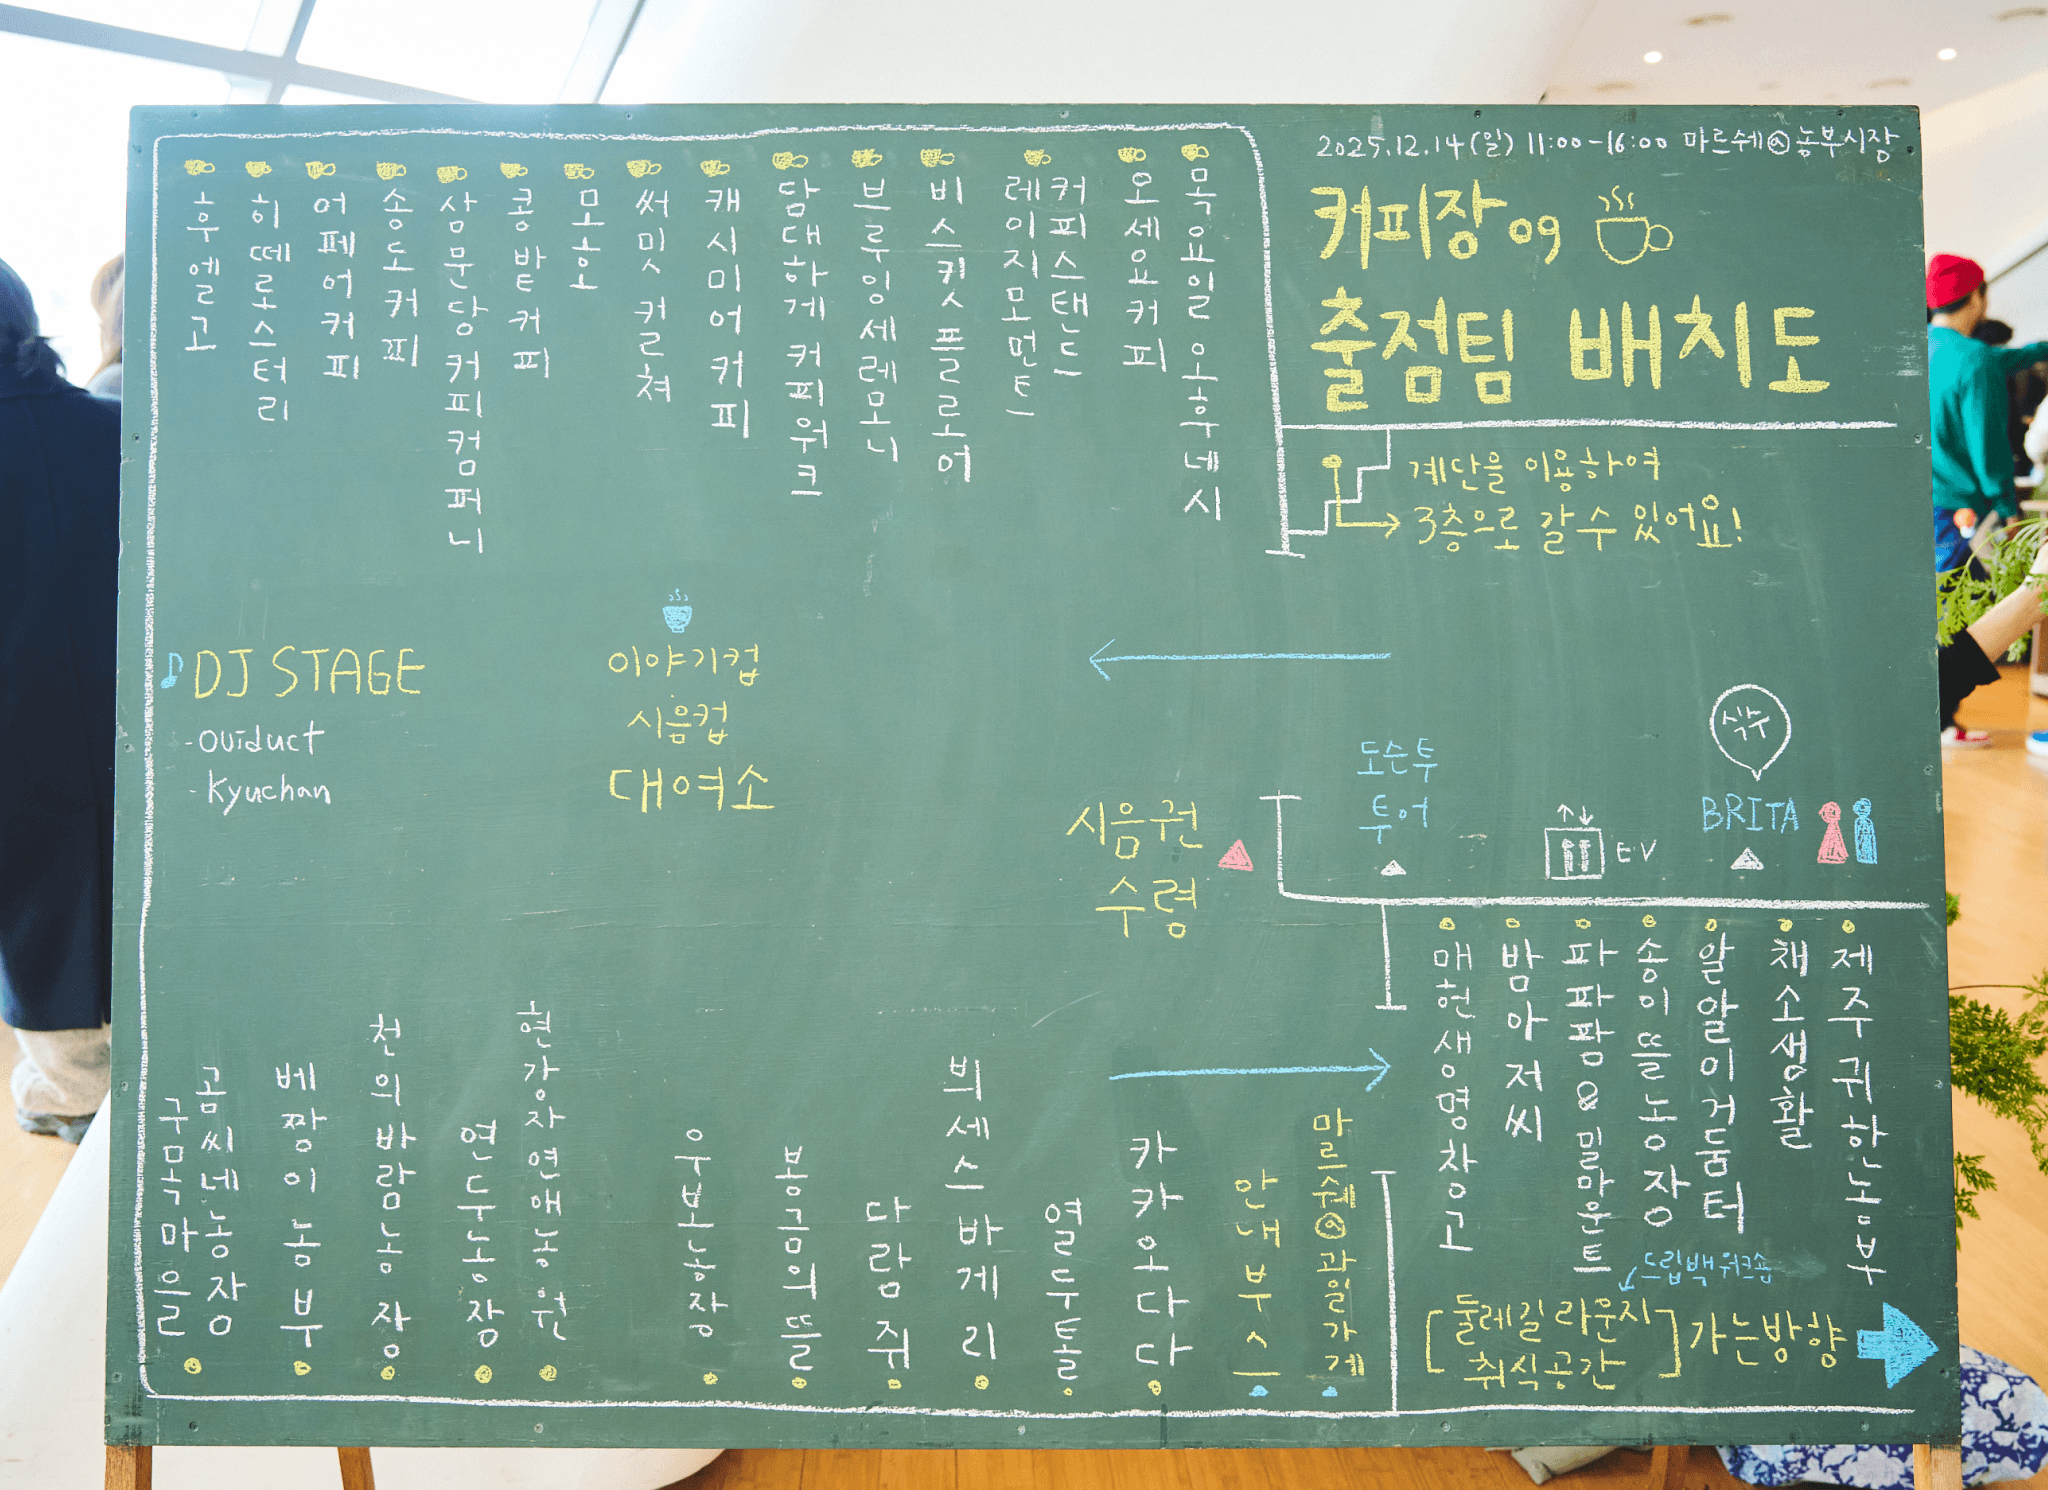 2025.12.14(일) 11:00-16:00 마르쉐@농부시장
커피장 09
출점팀 배치도
계단을 이용하여
3층으로 갈 수 있어요!
후엘고
히떼로스터리
어페어커피
송도커피
삼문당커피컴퍼니
콩밭커피
모호
써밋 컬쳐
캐시미어커피
담대하게 커피워크
브루잉세레모니
비스킷 플로어
레이지모먼트
커피스탠드
오세요커피
목요일 오후네시
DJ STAGE
- oviduct
- kyuchan
이야기컵
시음컵
대여소
시음권
수령
도슨투
투어
EV
식수
BRITA
매헌생명창고
밤아저씨
파파팜&밀마운트
송이뜰농장
알알이거둠터
채소생활
제주귀한농부
드립백 워크숍
[둘레길 라운지
취식공간]
가는방향
구목마을
곰씨네농장
베짱이농부
천의바람농장
연두농장
현강자연애농원
우보농장
봉금의뜰
다람쥐
븨세스 바게리
열두톨
카카오다다
안내부스
마르쉐@과일가게